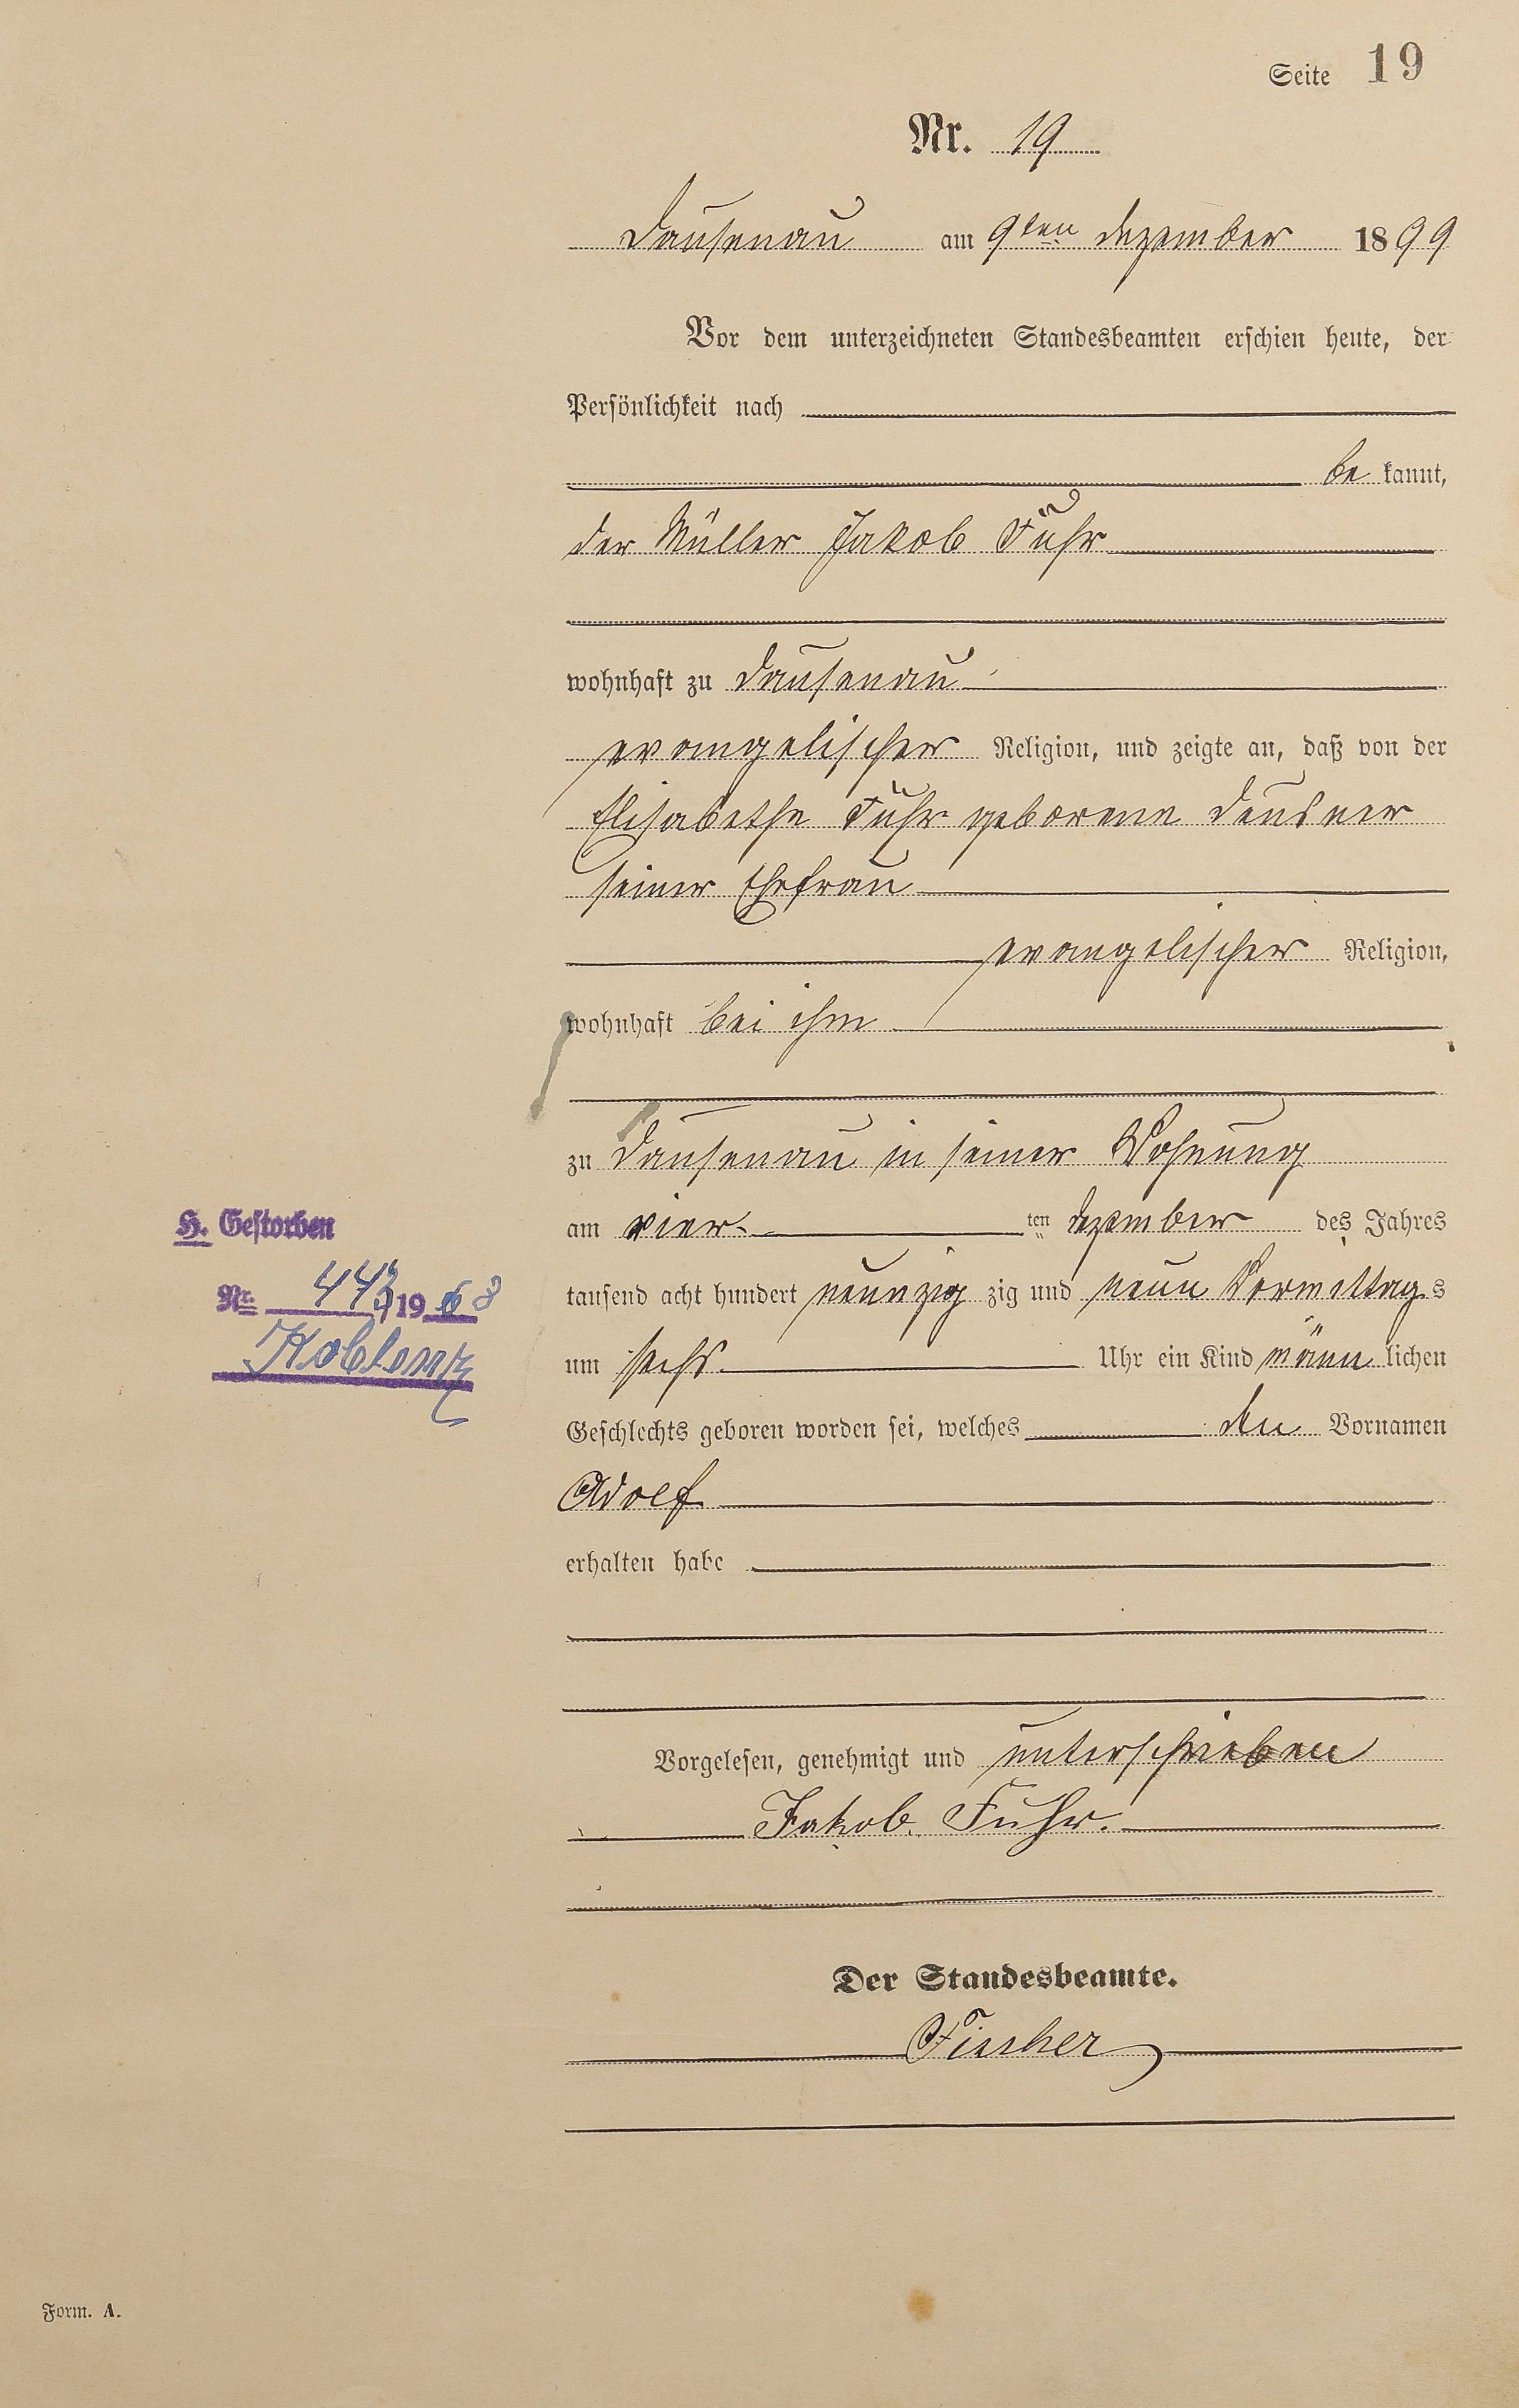 Seite 19
Nr. 19
Dausenau am 9ten Dezember 1899
Vor dem unterzeichneten Standesbeamten erschien heute, der
Persönlichkeit nach
be kannt,
der Müller Jakob Fuhr
wohnhaft zu Dausenau
evangelischer Religion, und zeigte an, daß von der
Elisabethe Fuhr geborene Deusner
seiner Ehefrau
evangelischer Religion,
wohnhaft bei ihm
zu Dausenau in seiner Wohnung
am vier ten Dezember des Jahres
tausend acht hundert neunzig zig und neun Vormittags
um sechs Uhr ein Kind männ lichen
Geschlechts geboren worden sei, welches den Vornamen
Adolf
erhalten habe
Vorgelesen, genehmigt und unterschrieben
Jakob Fuhr.
Der Standesbeamte.
Fischer
H. Gestorben
Nr. 19
Koblenz
Form. A.